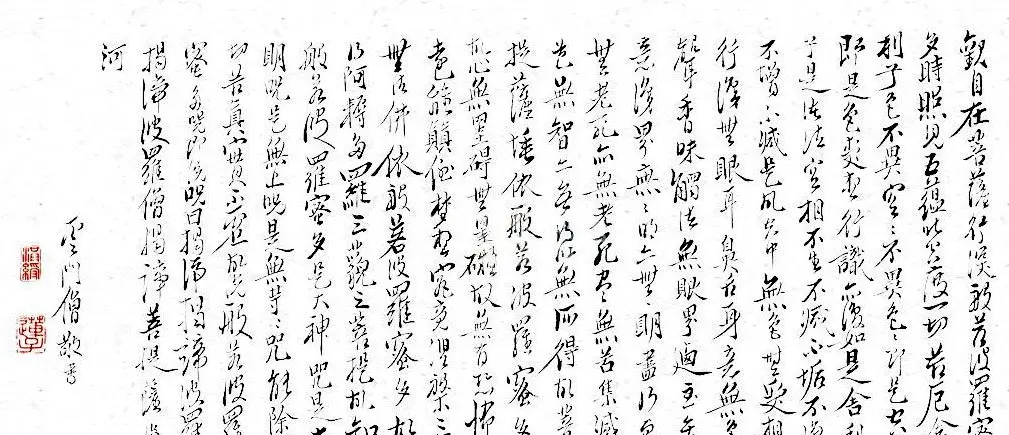 觀自在菩薩行深般若波羅蜜
多時照見五蘊皆空度一切苦厄舍
利子色不異空〻不異色〻即是空
即是色受想行識亦復如是舍利
子是諸法空相不生不滅不垢不淨
不增不減是故空中無色無受想
行識無眼耳鼻舌身意無色
聲香味觸法無眼界乃至無
意識界無〻明亦無無明盡乃至
無老死亦無老死盡無苦集滅
道無智亦無得以無所得故菩
提薩埵依般若波羅蜜多
故心無罣礙無罣礙故無有恐怖
遠離顛倒夢想究竟涅槃三
世諸佛依般若波羅蜜多故
得阿耨多羅三藐三菩提故知
般若波羅蜜多是大神咒是大
明咒是無上咒是無等〻咒能除
一切苦真實不虛故說般若波羅
蜜多咒即說咒曰揭諦揭諦波羅
揭諦波羅僧揭諦菩提薩婆
河
雲門僧敬書